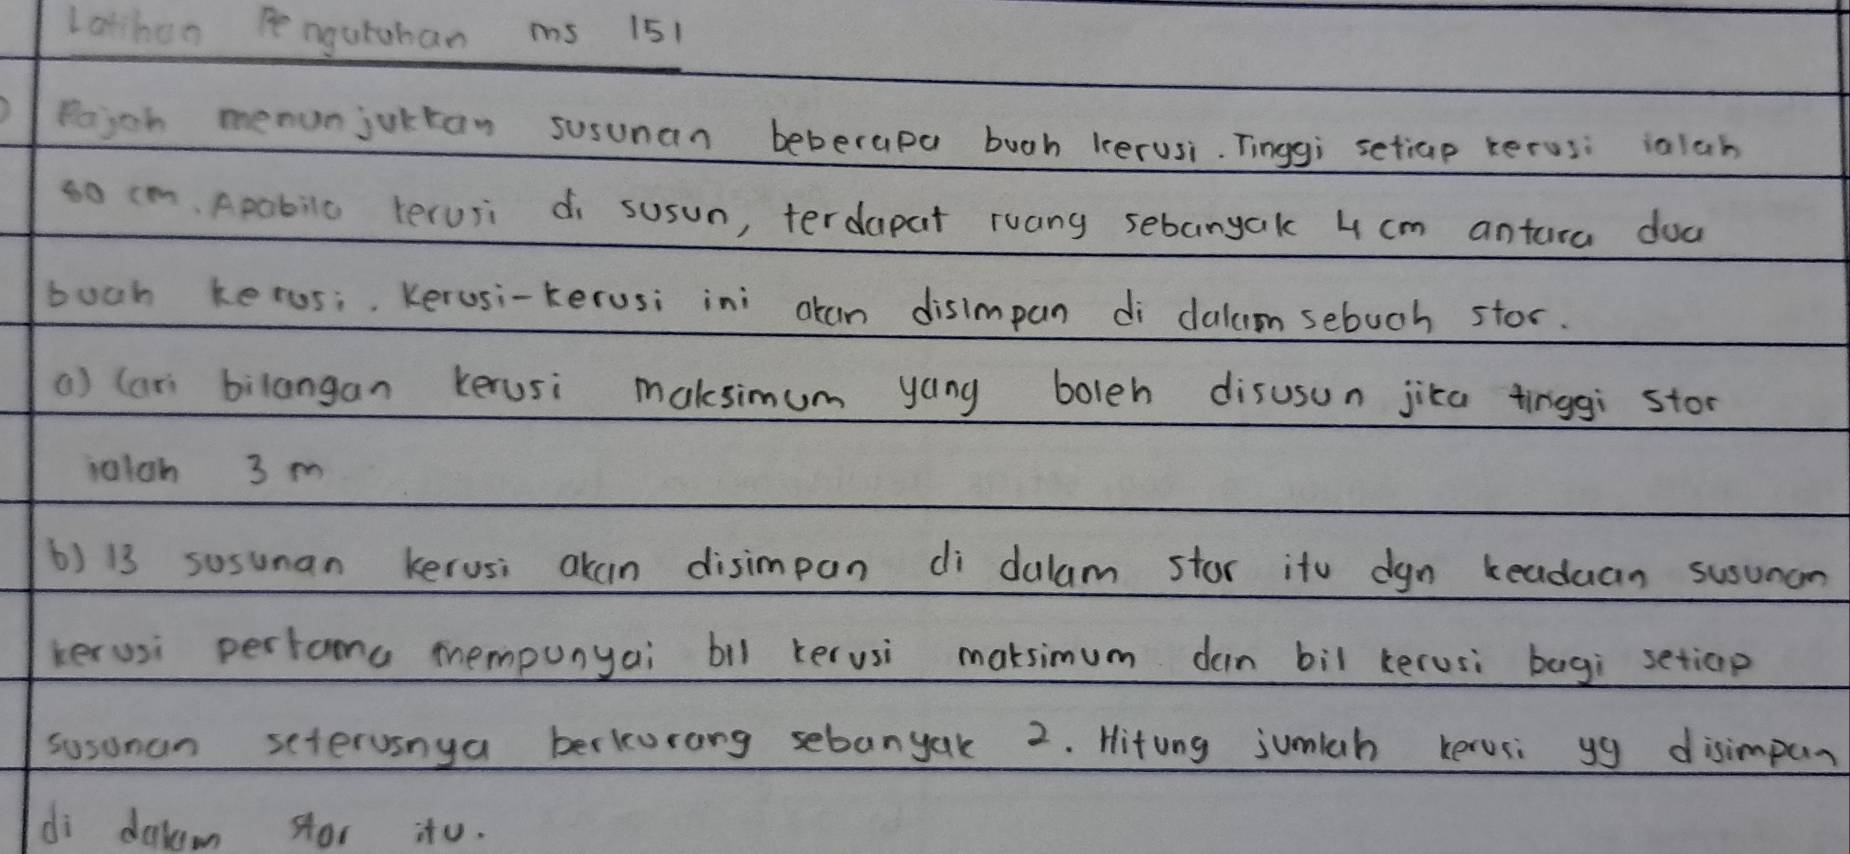 Latihan Pengukuhan ms 151
Rajah menunjukkan susunan beberapa buah kerusi. Tinggi setiap kerusi ialah
80 cm. Apabila kerusi di susun, terdapat ruang sebanyak 4 cm antara dua
buah kerusi. Kerusi-kerusi ini akan disimpan di dalam sebuah stor.
a) Cari bilangan kerusi maksimum yang boleh disusun jika tinggi stor
ialah 3 m
b) 13 susunan kerusi akan disimpan di dalam stor itu dgn keadaan susunan
kerusi pertama mempunyai bil kerusi maksimum dan bil kerusi bagi setiap
susunan seterusnya berkurang sebanyak 2. Hitung jumlah kerusi yg disimpan
di dalam stor itu.